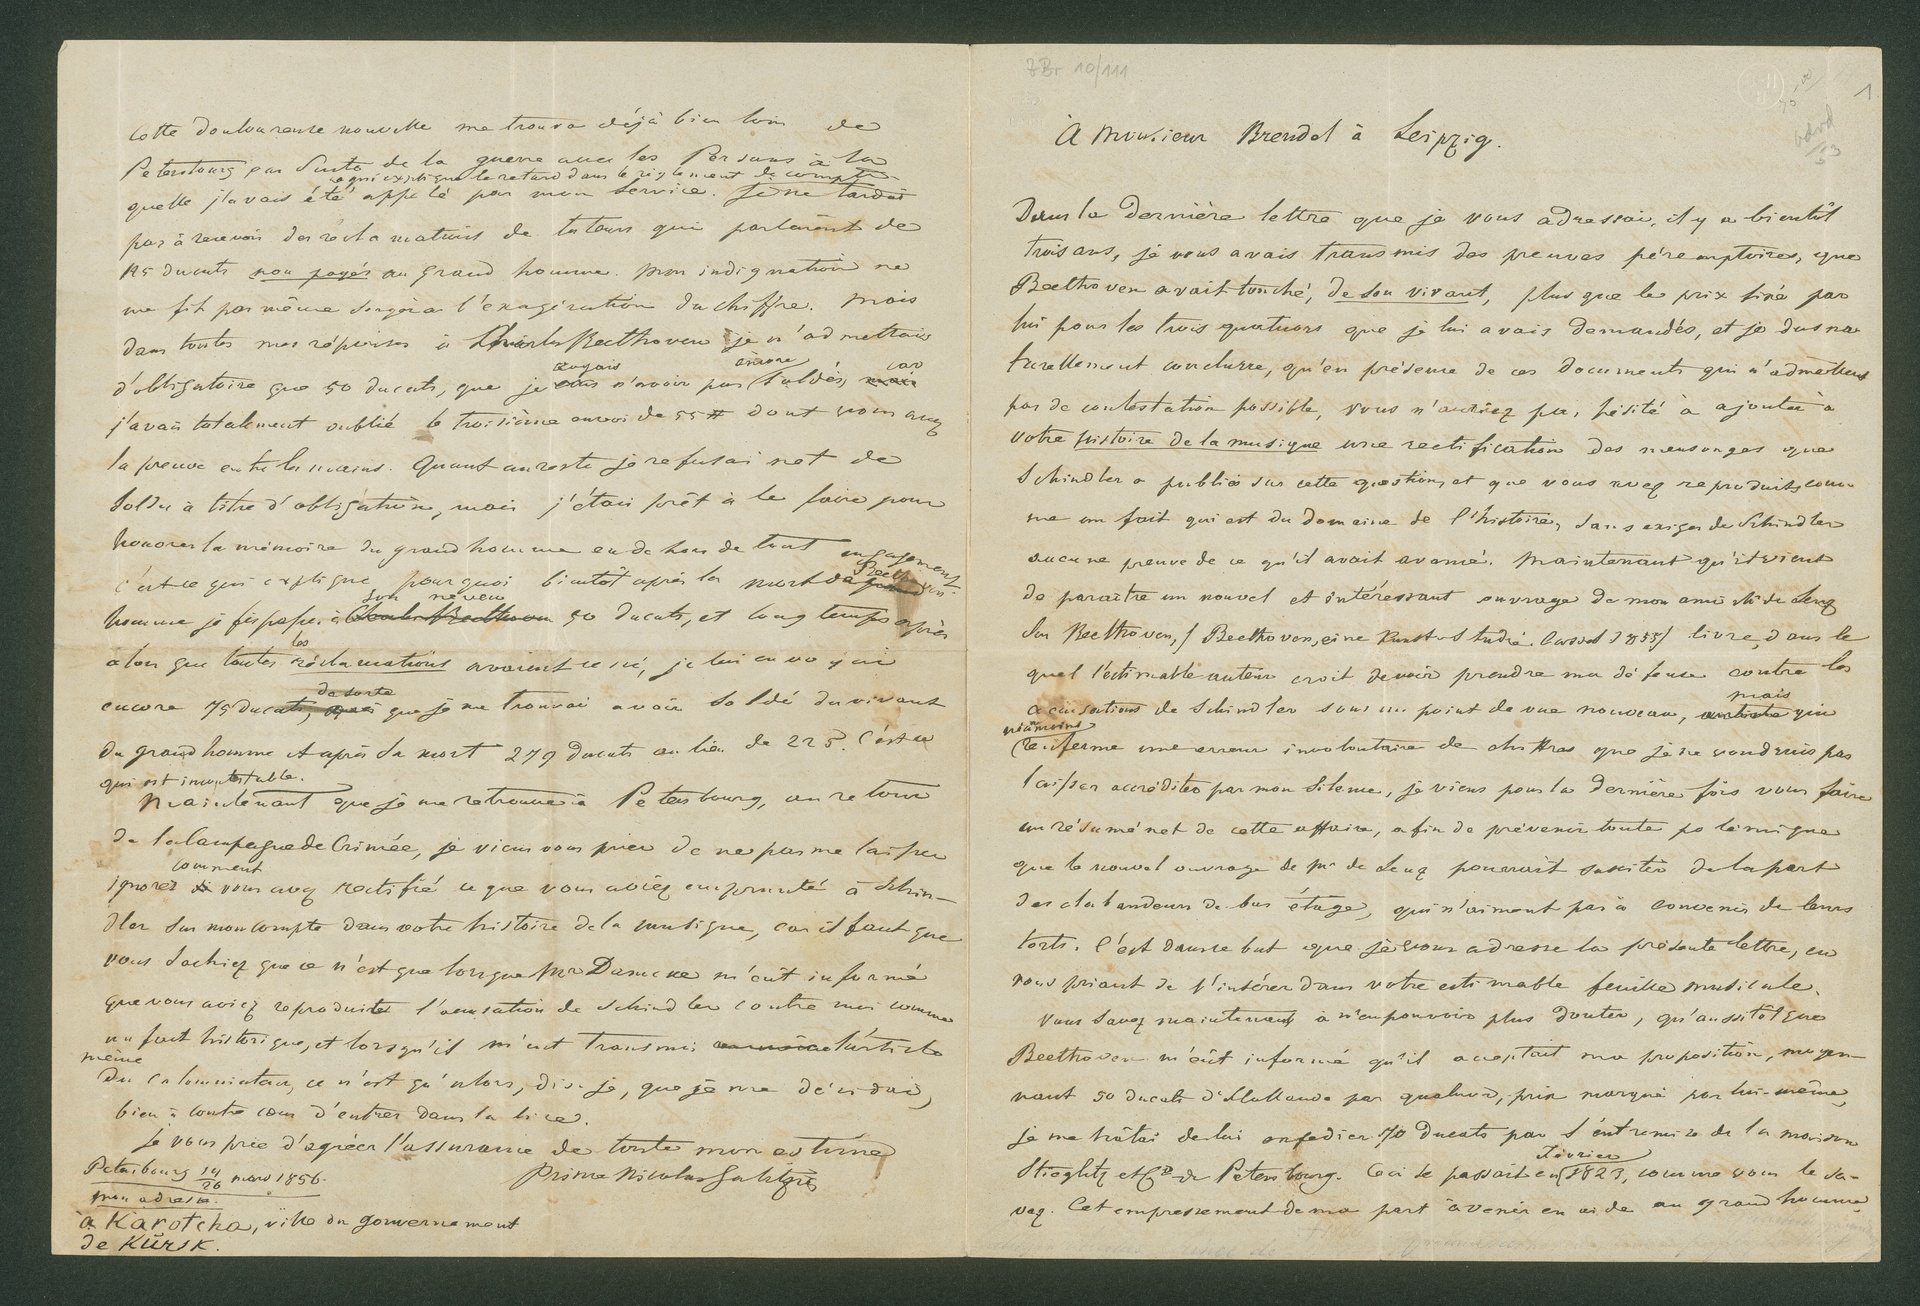 7Br 10/111
1
À Monsieur Brendel à Leipzig.
Dans la dernière lettre que je vous adressai, il y a bientôt
trois ans, je vous avais transmis des preuves péremptoires, que
Beethoven avait touché, de son vivant, plus que le prix fixé par
lui pour les trois quatuors que je lui avais demandés, et je dus na
turellement conclurre, qu'en présence de ces documents qui n'admettent
pas de contestation possible, vous n'auriez pas hésité à ajouter à
votre histoire de la musique une rectification des mensonges que
Schindler a publiés sur cette question, et que vous avez reproduits com
me un fait qui est du domaine de l'histoire, sans exiger de Schindler
aucune preuve de ce qu'il avait avancé. Maintenant qu'il vient
de paraitre un nouvel et intéressant ouvrage de mon ami Mr de Lenz
sur Beethoven, / Beethoven, eine Kunst-Studie. Cassel 1855/ livre, dans le
quel l'estimable auteur croit devoir prendre ma défense contre les
accusations de Schindler sous un point de vue nouveau, mais qui
néanmoins
renferme une erreur involontaire de chiffres que je ne voudrais pas
laisser accréditer par mon silence, je viens pour la dernière fois vous faire
un résumé net de cette affaire, afin de prévenir toute polémique
que le nouvel ouvrage de Mr de Lenz pourrait susciter de la part
des clabaudeurs de bas étage, qui n'aiment pas à convenir de leurs
torts. C'est dans ce but que je vous adresse la présente lettre, en
vous priant de l'insérer dans votre estimable feuille musicale.
Vous savez maintenant à n'en pouvoir plus douter, qu'aussitôt que
Beethoven m'eût informé qu'il acceptait ma proposition, moyen-
nant 50 ducats d'Hollande par quatuor, prix marqué par lui-même,
je me hâtai de lui expédier 70 ducats par l'entremise de la maison
Février
Stieglitz et Cie de Petersbourg. Ceci se passait en 1823, comme vous le sa-
vez. Cet empressement de ma part à venir en aide au grand homme,
Cette douloureuse nouvelle me trouva déjà bien loin de
Petersbourg par suite de la guerre avec les Persans à la
ce qui explique le retard dans le règlement de compte.
quelle j'avais été appelé par mon service. Je ne tardai
pas à recevoir des réclamations de tuteurs qui parlèrent de
125 ducats non payés au grand homme. Mon indignation ne
me fit pas même songer à l'exagération du chiffre. Mais
dans toutes mes réponses à Charles Beethoven je n'admettais
croyais encore car
d'obligatoire que 50 ducats, que je n'avoir pas soldés,
j'avais totalement oublié le troisième envoi de 55 # dont vous avez
la preuve entre les mains. Quant au reste je refusai net de
solder à titre d'obligation, mais j'étais prêt à le faire pour
honorer la mémoire du grand homme en dehors de tout engagement
Beethoven
c'est ce qui explique pourquoi bientôt après la mort de
son neveu
homme je fis passer à Charles Beethoven 50 ducats, et long temps après
les
alors que toutes réclamations avaient cessé, je lui envoyai
de sorte
encore 75 ducats, que je me trouvai avoir soldé du vivant
du grand homme et après sa mort 279 ducats au lieu de 225. C'est ce
qui est incontestable.
Maintenant que je me retrouve à Petersbourg, au retour
de la Campagne de Crimée, je viens vous prier de ne pas me laisser
comment
ignorer si vous avez rectifié ce que vous aviez emprunté à Schin-
dler sur mon compte dans votre histoire de la musique, car il faut que
vous sachiez que ce n'est que lorsque Mr Damcke m'eût informé
que vous aviez reproduite l'accusation de Schindler contre moi comme
un fait historique, et lorsqu'il m'eut transmis l'article
même
du calomniateur, ce n'est qu'alors, dis-je, que je me décidai,
bien à contre coeur d'entrer dans la lice.
Je vous prie d'agréer l'assurance de toute mon estime
Prince Nicolas Galitzin
Petersbourg 14/26 mars 1856.
mon adresse.
à Karotcha, ville du gouvernement
de Kursk.